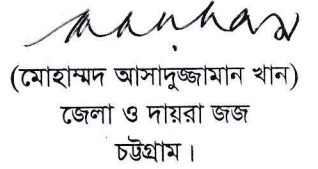 (মোহাম্মদ আসাদুজ্জামান খান)
জেলা ও দায়রা জজ
চট্টগ্রাম।